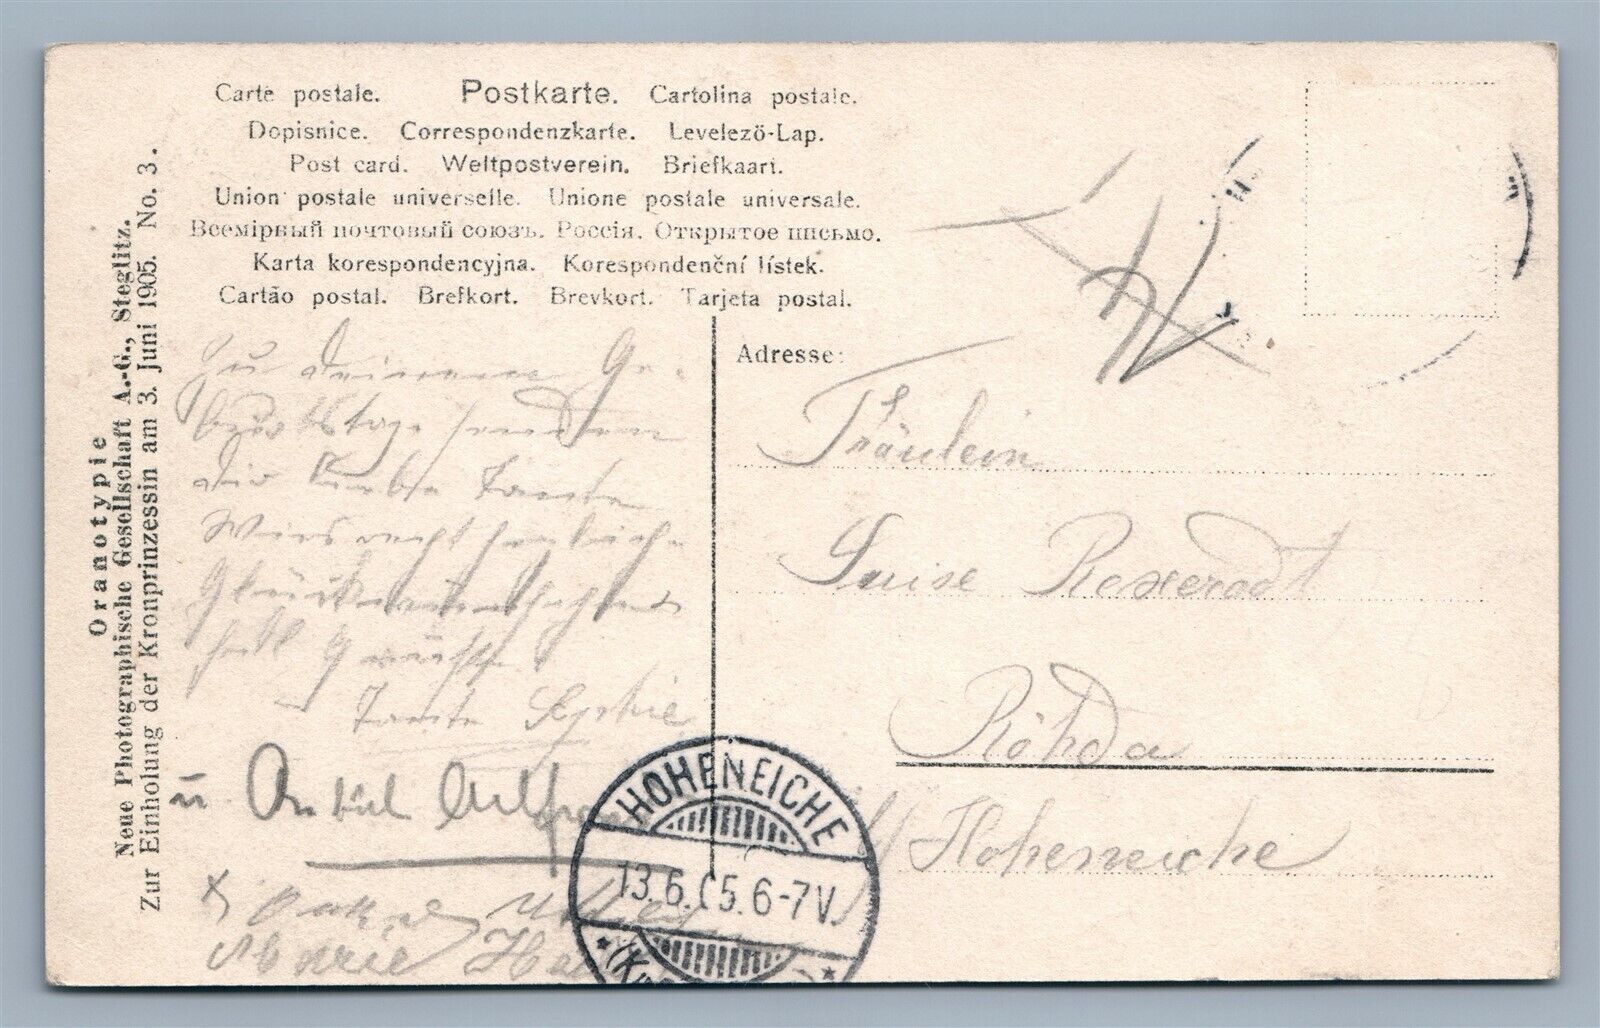 Carte postale. Postkarte. Cartolina postale.
Dopisnice. Correspondenzkarte. Levelező-Lap.
Post card. Weltpostverein. Briefkaart.
Union postale universelle. Unione postale universale.
Всемірный почтовый союзъ. Россія. Открытое письмо.
Karta korespondencyjna. Korespondenční lístek.
Cartão postal. Brefkort. Brevkort. Tarjeta postal.
Oranotypie
Neue Photographische Gesellschaft A.-G., Steglitz.
Zur Einholung der Kronprinzessin am 3. Juni 1905. No. 3.
Zu Deinem Ge-
burtstage senden
Dir liebe Tante
Wir recht herzliche
Glückwünsche
Grüße
Tante Sophie
u. Onkel
Marie
Adresse:
Fräulein
Luise Rexerodt
Röhda
b/ Hoheneiche
HOHENEICHE
13.6.05.6-7V.